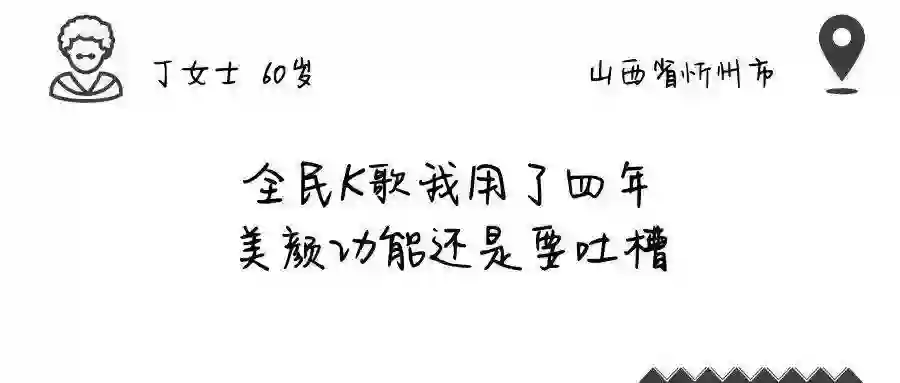 丁女士 60岁
山西省忻州市
全民K歌我用了四年
美颜功能还是要吐槽